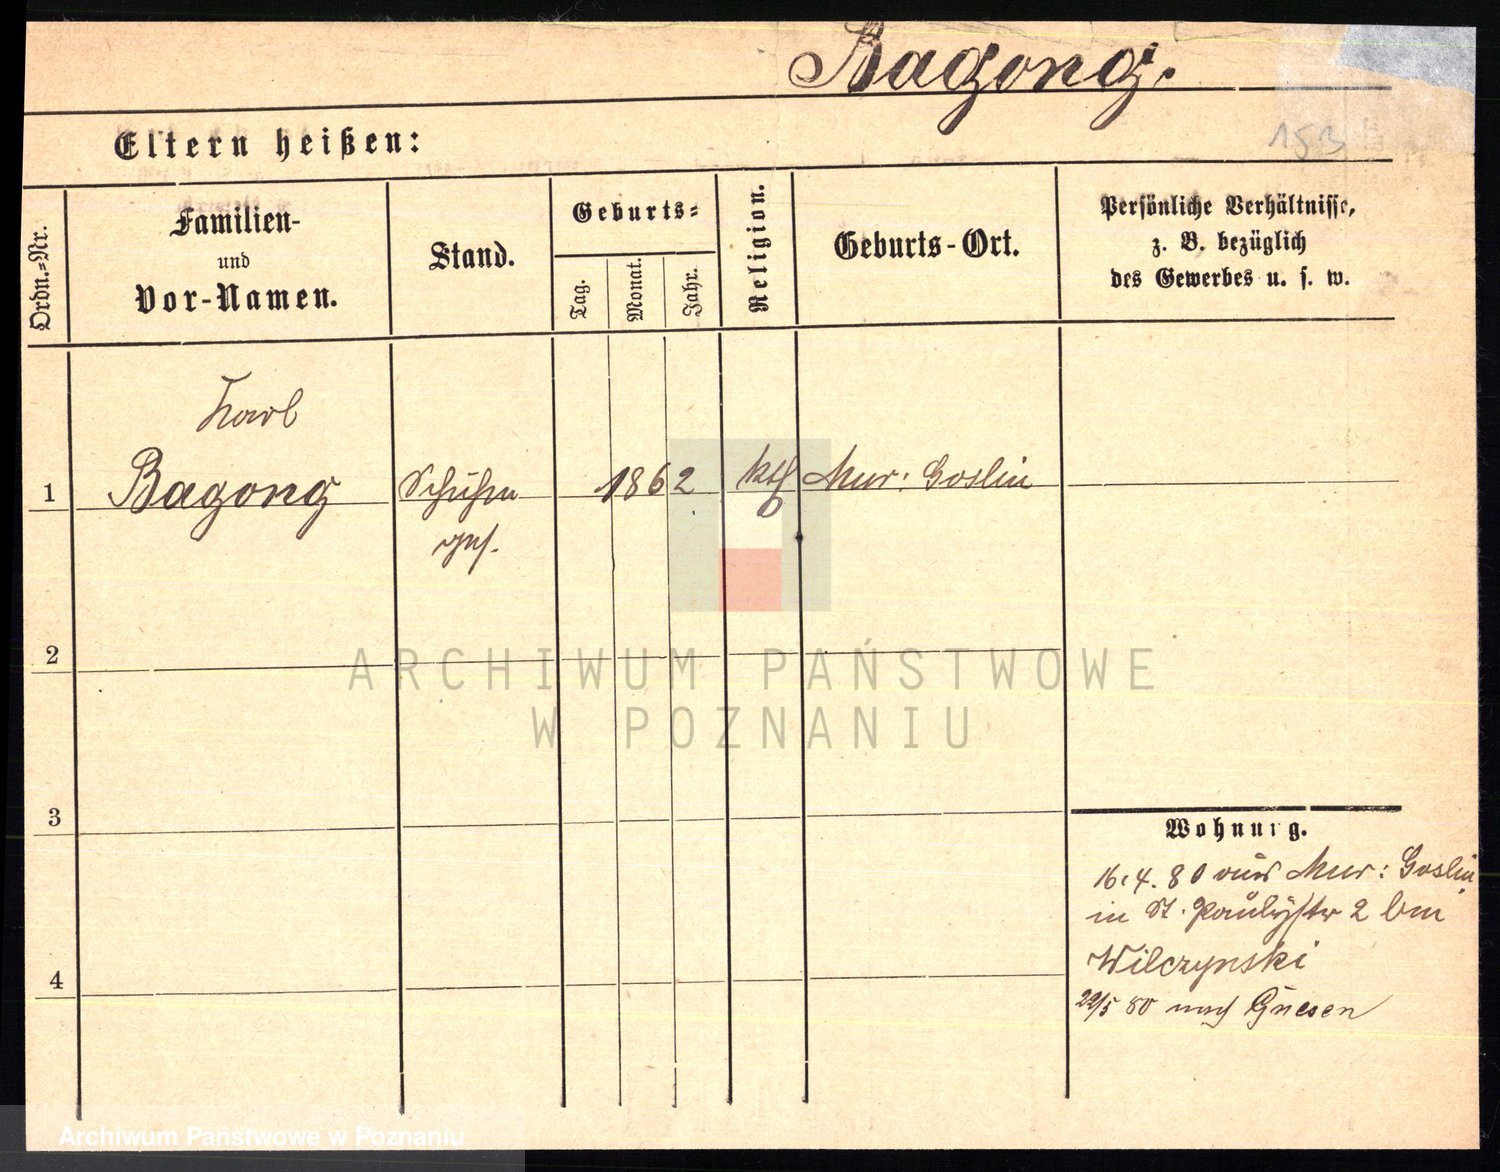 Bagong.
153
Eltern heißen:
Ordn.=Nr.
Familien-
und
Vor-Namen.
Stand.
Geburts=
Tag.
Monat.
Jahr.
Religion.
Geburts-Ort.
Persönliche Verhältnisse,
z. B. bezüglich
des Gewerbes u. s. w.
Karl
1 Bagong Schuhm 1862 kth Mur: Goslin
ges.
2
3
4
Wohnung.
16.4.80 aus Mur: Goslin
in St. Paulistr 2 bei
Wilczynski
22/5 80 nach Gnesen
ARCHIWUM PAŃSTWOWE
W POZNANIU
Archiwum Państwowe w Poznaniu